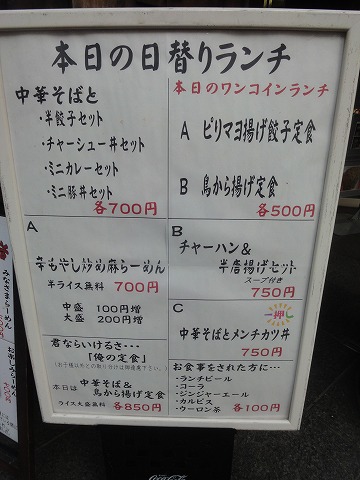 本日の日替りランチ
中華そばと
・半餃子セット
・チャーシュー丼セット
・ミニカレーセット
・ミニ豚丼セット
各700円
本日のワンコインランチ
A ピリマヨ揚げ餃子定食
B 鳥から揚げ定食
各500円
A
辛もやし炒め麻らーめん
半ライス無料 700円
中盛 100円増
大盛 200円増
B
チャーハン&
半唐揚げセット
スープ付き
750円
C
一押し
中華そばとメンチカツ丼
750円
君ならいけるさ・・
「俺の定食」
(お子様以外との取り分けは御遠慮下さい。)
本日は 中華そば&
鳥から揚げ定食
ライス大盛無料 各850円
お食事をされた方に・・・
・ランチビール
・コーラ
・ジンジャーエール
・カルピス
・ウーロン茶 各100円
みなさまらーめん
Coca-Cola